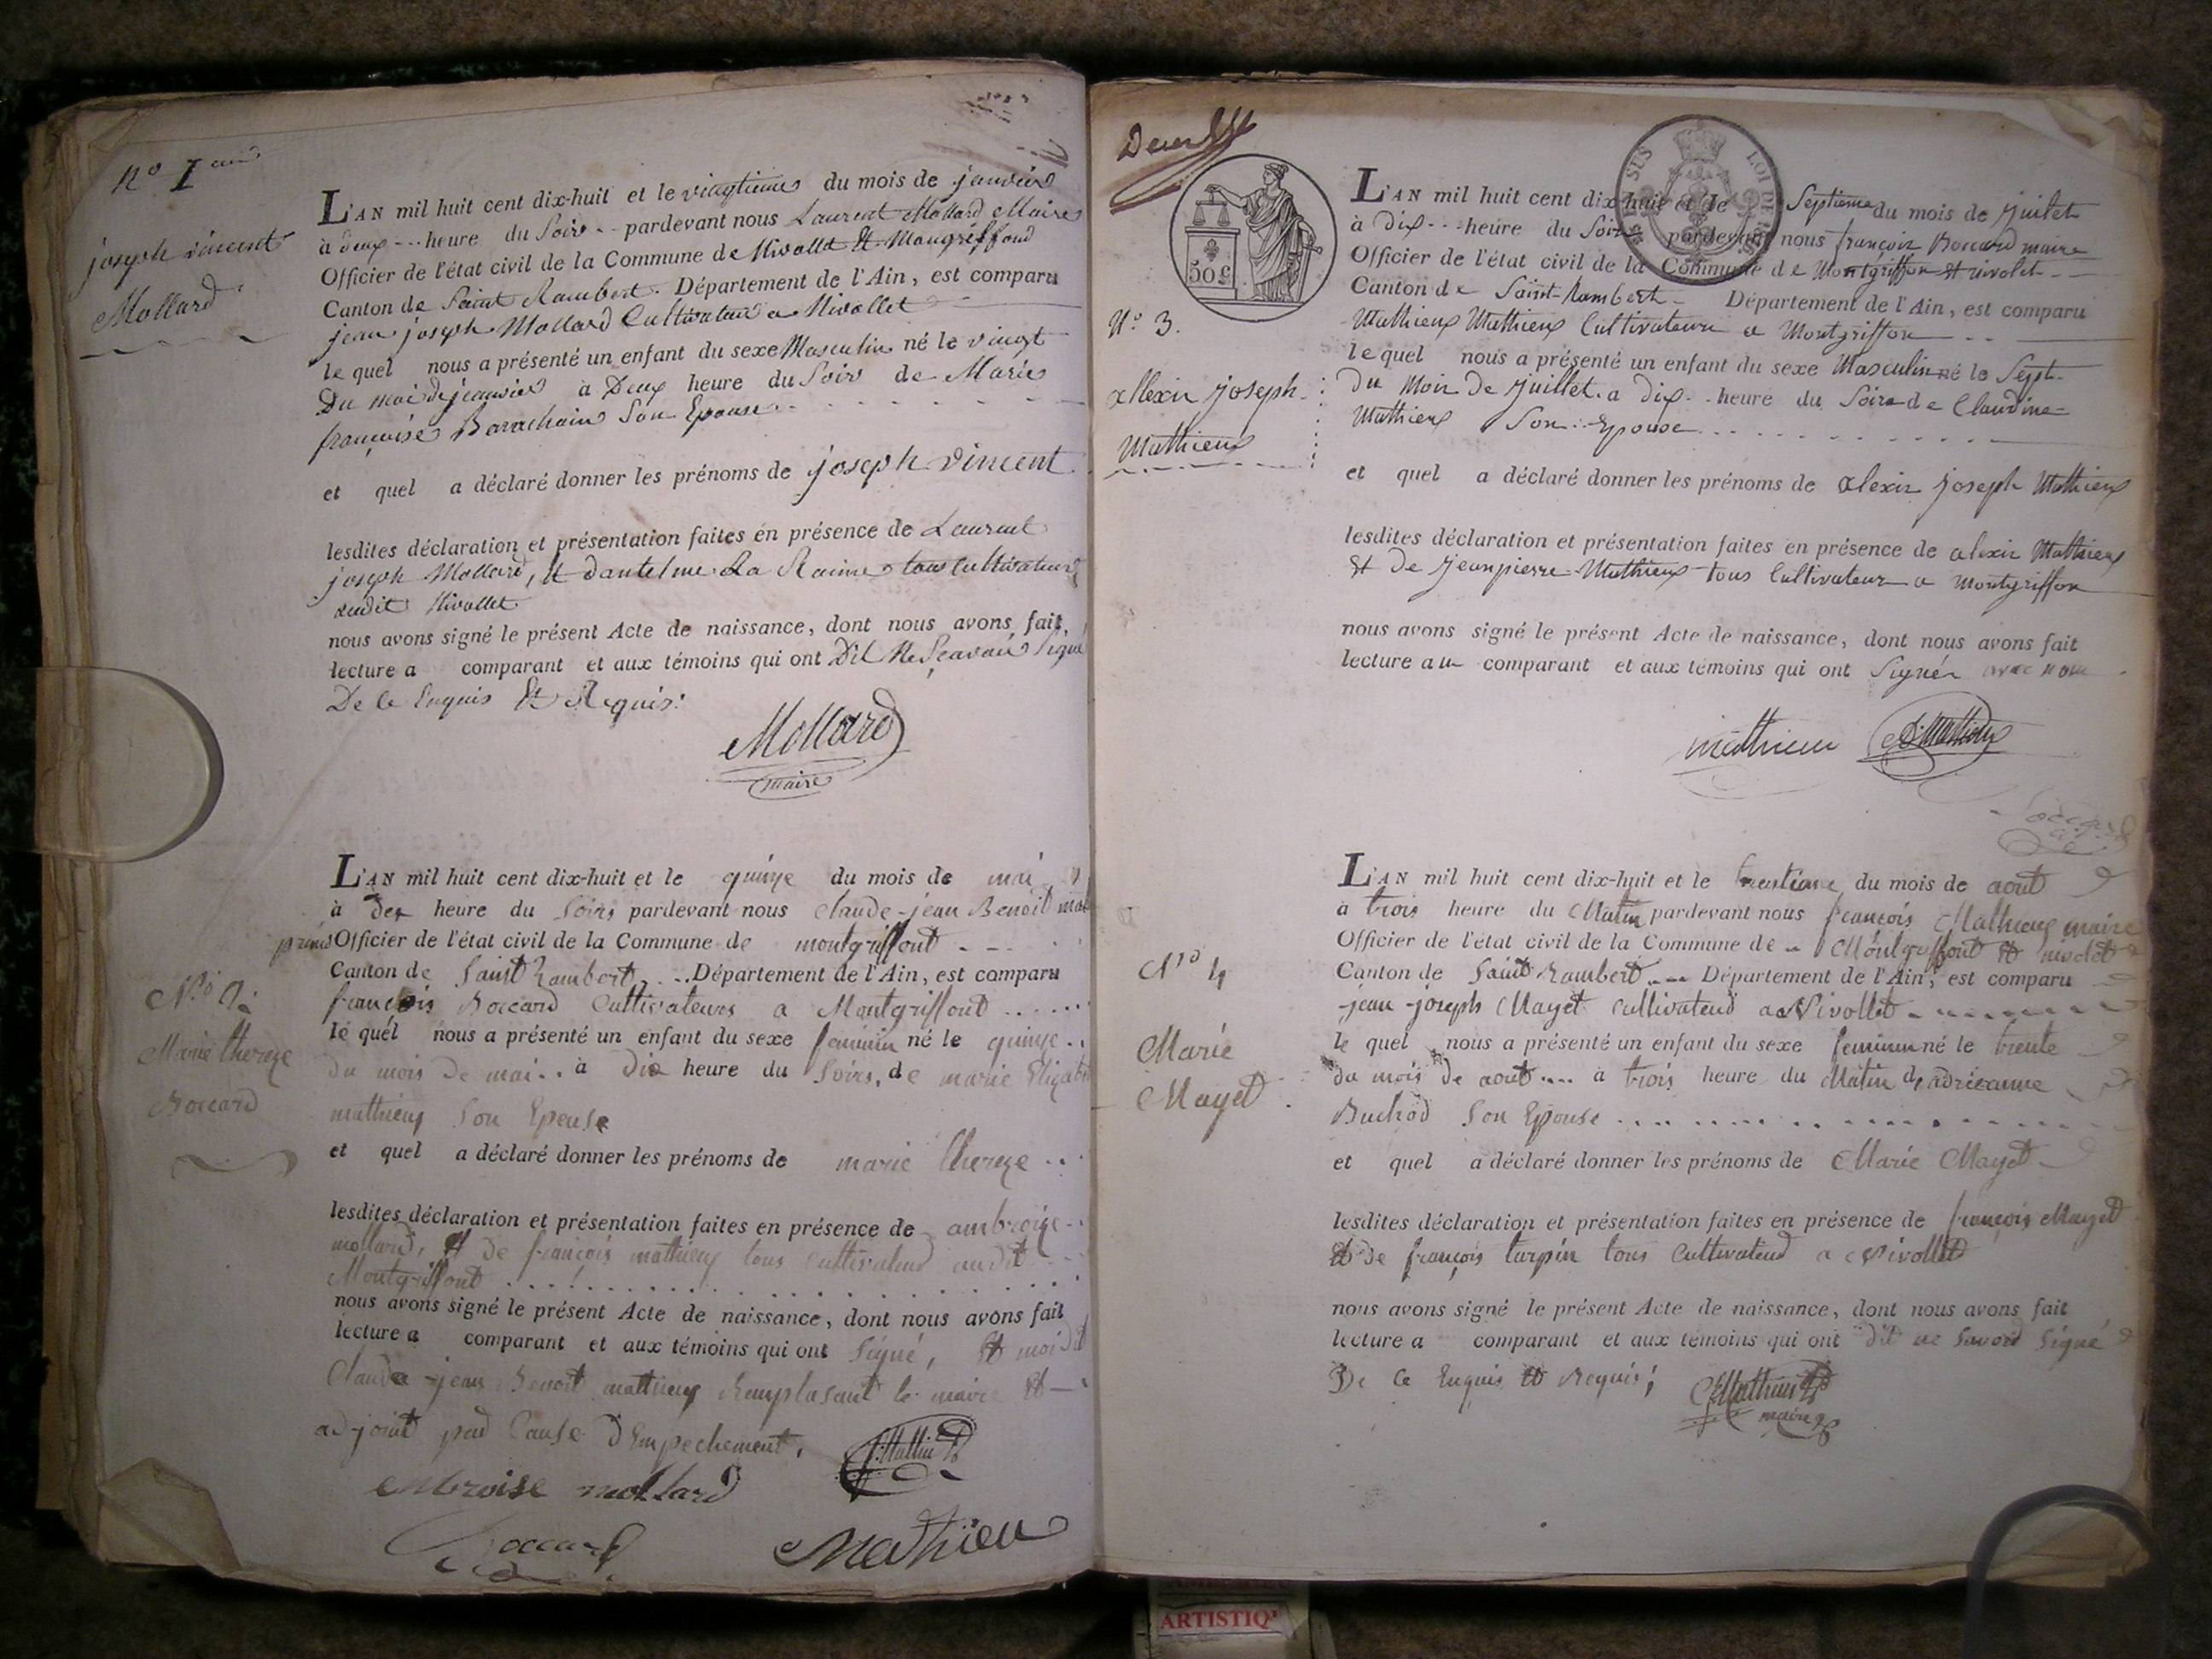 N° 1
joseph vincent
Mollard
L'AN mil huit cent dix-huit et le vingtieme du mois de janvier
à deux heure du Soir pardevant nous Laurent Mollard Maire
Officier de l'état civil de la Commune de Nivollet Et Mongriffond
Canton de Saint Rambert. Département de l'Ain, est comparu
jean joseph Mollard Cultivateur a Nivollet
le quel nous a présenté un enfant du sexe Masculin né le vingt
Du moi de jeanvier à Deux heure du Soir de Marie
françoise Son Epouse
et quel a déclaré donner les prénoms de joseph vincent
lesdites déclaration et présentation faites en présence de Laurent
joseph Mollard, Et dantelme La Raime tous Cultivateur
audit Nivollet
nous avons signé le présent Acte de naissance, dont nous avons fait
lecture a comparant et aux témoins qui ont Dit Ne Sçavoir Signé
De Ce Enquis Et Requis.
Mollard
maire
N° 2.
Marie thereze
Boccard
L'AN mil huit cent dix-huit et le quinze du mois de mai
à dex heure du Soirs pardevant nous claude-jean Benoit mat
Officier de l'état civil de la Commune de montgriffont
Canton de Saint Rambert, Département de l'Ain, est comparu
francois Boccard Cultivateurs a Montgriffont
le quel nous a présenté un enfant du sexe feminin né le quinze
du mois de mai à dix heure du Soirs, de marie Elizabet
mathieux Son Epouse
et quel a déclaré donner les prénoms de marie thereze
lesdites déclaration et présentation faites en présence de ambroize
mollard, Et de françois mathieux tous cultivateur audit
Montgriffont
nous avons signé le présent Acte de naissance, dont nous avons fait
lecture a comparant et aux témoins qui ont Signé, Et moi dit
Claude-jean Benoit mathieux Remplasant le maire Et
adjoint par Cause d'Empechement.
Mbroise mollard
Boccard
Mathieu
N° 3.
alexis joseph
Mathieux
50 C
L'AN mil huit cent dix-huit et le Septieme du mois de juillet
à dix heure du Soir pardevant nous françois Boccard maire
Officier de l'état civil de la Commune de Montgriffon Et nivolet
Canton de Saint-Rambert Département de l'Ain, est comparu
Mathieux Mathieux Cultivateur a Montgriffon
le quel nous a présenté un enfant du sexe Masculin né le Sept
du Mois de juillet a dix heure du Soir de Claudine
Mathieux Son Epouse
et quel a déclaré donner les prénoms de alexis joseph Mathieux
lesdites déclaration et présentation faites en présence de alexis Mathieux
Et De jeanpierre Mathieux tous Cultivateur a Montgriffon
nous avons signé le présent Acte de naissance, dont nous avons fait
lecture au comparant et aux témoins qui ont Signés avec nous
mathieu
Boccard
N° 4
Marie
Mayet
L'AN mil huit cent dix-huit et le trentieme du mois de aout
à trois heure du Matin pardevant nous françois Mathieux maire
Officier de l'état civil de la Commune de Montgriffont Et nivolet
Canton de Saint Rambert Département de l'Ain, est comparu
jean-joseph Mayet cultivateur a Nivollet
le quel nous a présenté un enfant du sexe feminin né le trente
du mois de aout à trois heure du Matin de adrieanne
Buchod Son Epouse
et quel a déclaré donner les prénoms de Marie Mayet
lesdites déclaration et présentation faites en présence de françois Mayet
Et de françois turpin tous Cultivateur a Nivollet
nous avons signé le présent Acte de naissance, dont nous avons fait
lecture a comparant et aux témoins qui ont dit ne Savoir Signé
De Ce Enquis Et Requis;
maire
ARTISTIQ